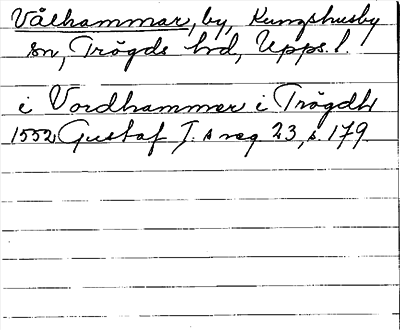 Vålhammar, by, Kungshusby
sn, Trögds hd, Upps. l.
i Vordhammer i Trögdh
1552 Gustaf I:s reg 23, s. 179